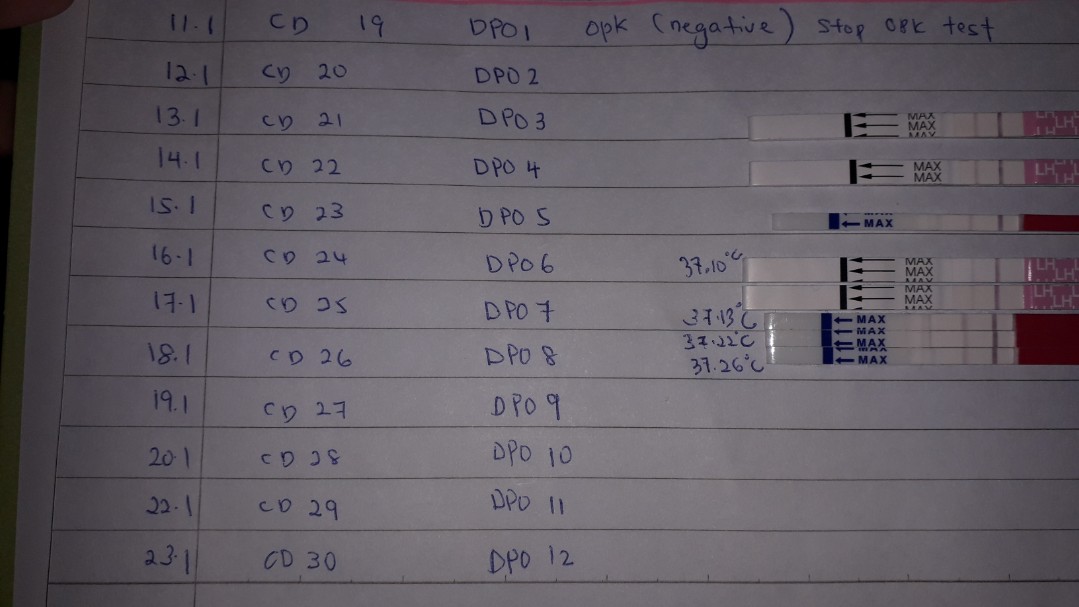 11.1 CD 19 DPO1 opk (negative) stop opk test
12.1 CD 20 DPO 2
13.1 CD 21 DPO 3 MAX MAX MAX LH
14.1 CD 22 DPO 4 MAX MAX LH
15.1 CD 23 DPO 5 MAX
16.1 CD 24 DPO 6 37.10°C MAX MAX MAX LH
17.1 CD 25 DPO 7 MAX MAX MAX LH
37.13°C MAX
37.22°C MAX
18.1 CD 26 DPO 8 MAX
37.26°C MAX
19.1 CD 27 DPO 9
20.1 CD 28 DPO 10
22.1 CD 29 DPO 11
23.1 CD 30 DPO 12